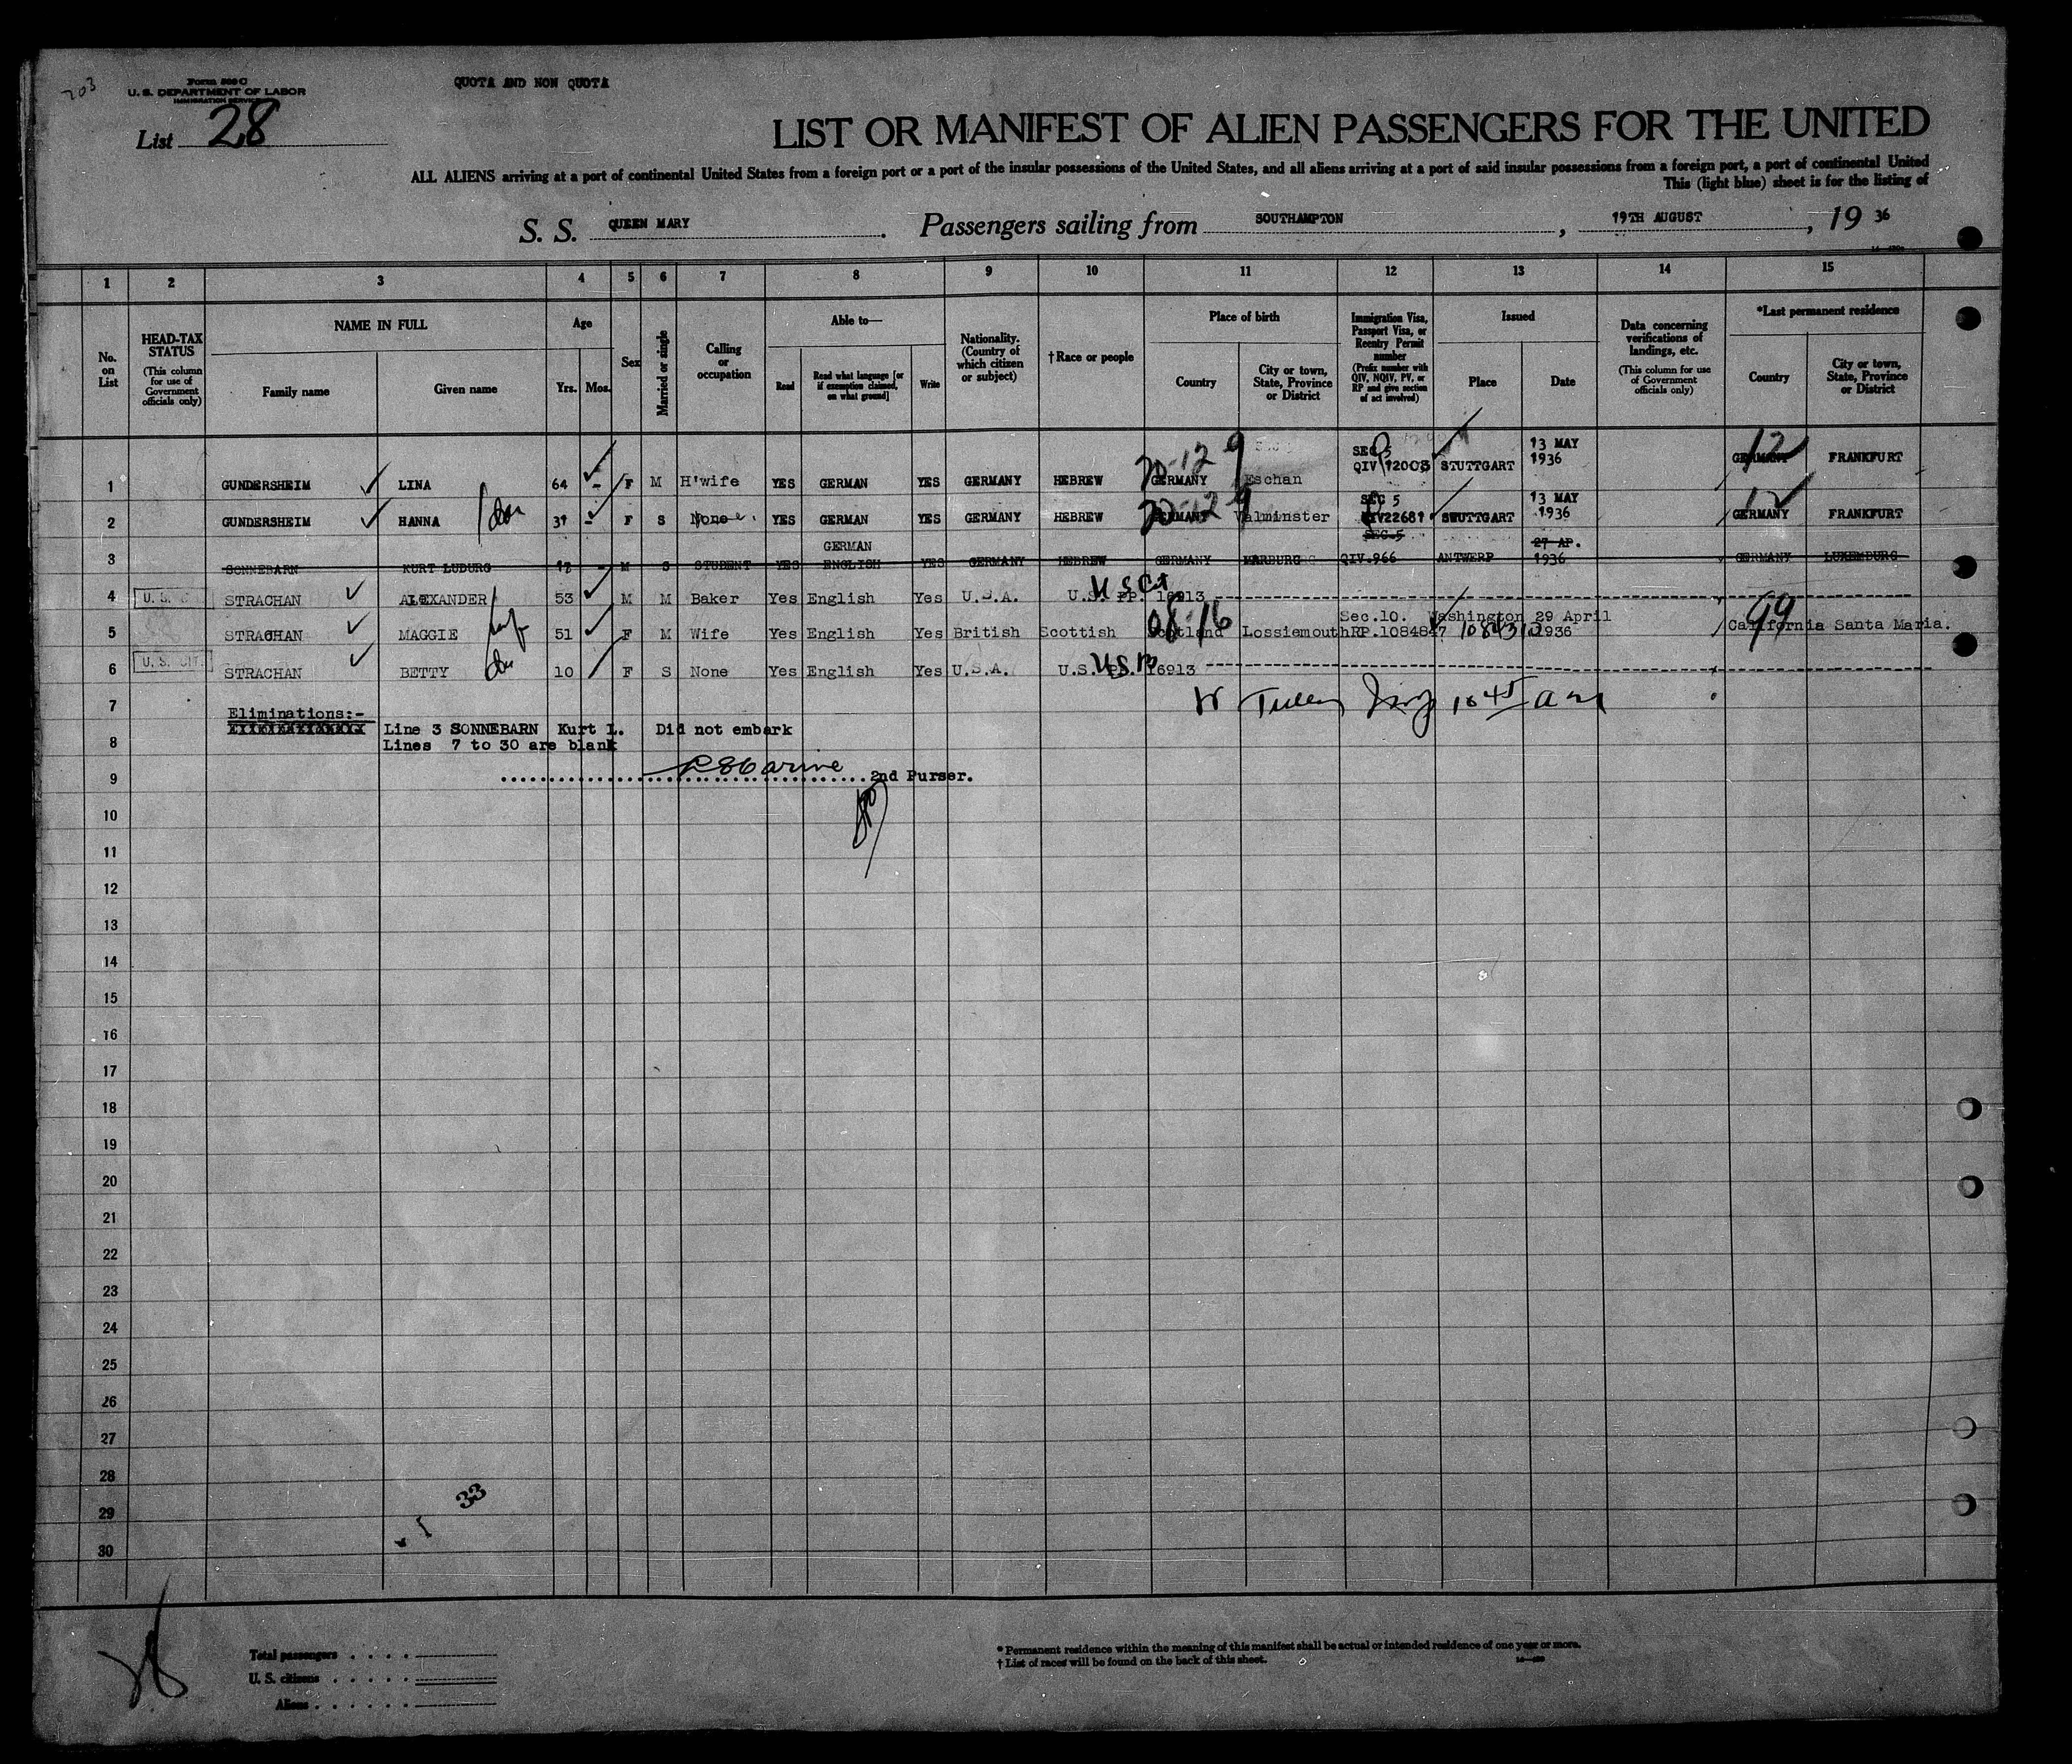 203
Form 500 C
U. S. DEPARTMENT OF LABOR
IMMIGRATION SERVICE
QUOTA AND NON QUOTA
List 28
LIST OR MANIFEST OF ALIEN PASSENGERS FOR THE UNITED
ALL ALIENS arriving at a port of continental United States from a foreign port or a port of the insular possessions of the United States, and all aliens arriving at a port of said insular possessions from a foreign port, a port of continental United
This (light blue) sheet is for the listing of
S. S. QUEEN MARY . Passengers sailing from SOUTHAMPTON , 19TH AUGUST , 19 36
1 2 3 4 5 6 7 8 9 10 11 12 13 14 15
No. on List
HEAD-TAX STATUS (This column for use of Government officials only)
NAME IN FULL
Family name Given name
Age
Yrs. Mos.
Sex
Married or single
Calling or occupation
Able to—
Read Read what language [or if exemption claimed, on what ground] Write
Nationality. (Country of which citizen or subject)
†Race or people
Place of birth
Country City or town, State, Province or District
Immigration Visa, Passport Visa, or Reentry Permit number (Prefix number with QIV, NQIV, PV, or RP and give section of act involved)
Issued
Place Date
Data concerning verifications of landings, etc. (This column for use of Government officials only)
*Last permanent residence
Country City or town, State, Province or District
1 GUNDERSHEIM LINA 64 - F M H'wife YES GERMAN YES GERMANY HEBREW GERMANY Eschan SEC 5 QIV 12003 STUTTGART 13 MAY 1936 GERMANY FRANKFURT
20-12 9 12
2 GUNDERSHEIM HANNA 31 - F S None YES GERMAN YES GERMANY HEBREW GERMANY Valminster SEC 5 QIV22681 STUTTGART 13 MAY 1936 GERMANY FRANKFURT
20-12 9 12
3 SONNEBARN KURT LUDURG 17 - M S STUDENT YES GERMAN ENGLISH YES GERMANY HEBREW GERMANY MARBURG SEC.5 QIV.966 ANTWERP 27 AP. 1936 GERMANY LUXEMBURG
4 U. S. STRACHAN ALEXANDER 53 M M Baker Yes English Yes U.S.A. U.S. PP. 16913
U S Ct
5 STRACHAN MAGGIE 51 F M Wife Yes English Yes British Scottish Scotland Lossiemouth Sec.10. RP.1084847 Washington 29 April 1936 California Santa Maria.
08-16 1084312 99
6 U. S. CIT. STRACHAN BETTY 10 F S None Yes English Yes U.S.A. U.S. PP. 16913
U S B
7 Eliminations:-
10 45 am
Line 3 SONNEBARN Kurt L. Did not embark
8 Lines 7 to 30 are blank
9 2nd Purser.
10
11
12
13
14
15
16
17
18
19
20
21
22
23
24
25
26
27
28
29
30
33
Total passengers
U. S. citizens
Aliens
* Permanent residence within the meaning of this manifest shall be actual or intended residence of one year or more.
† List of races will be found on the back of this sheet.